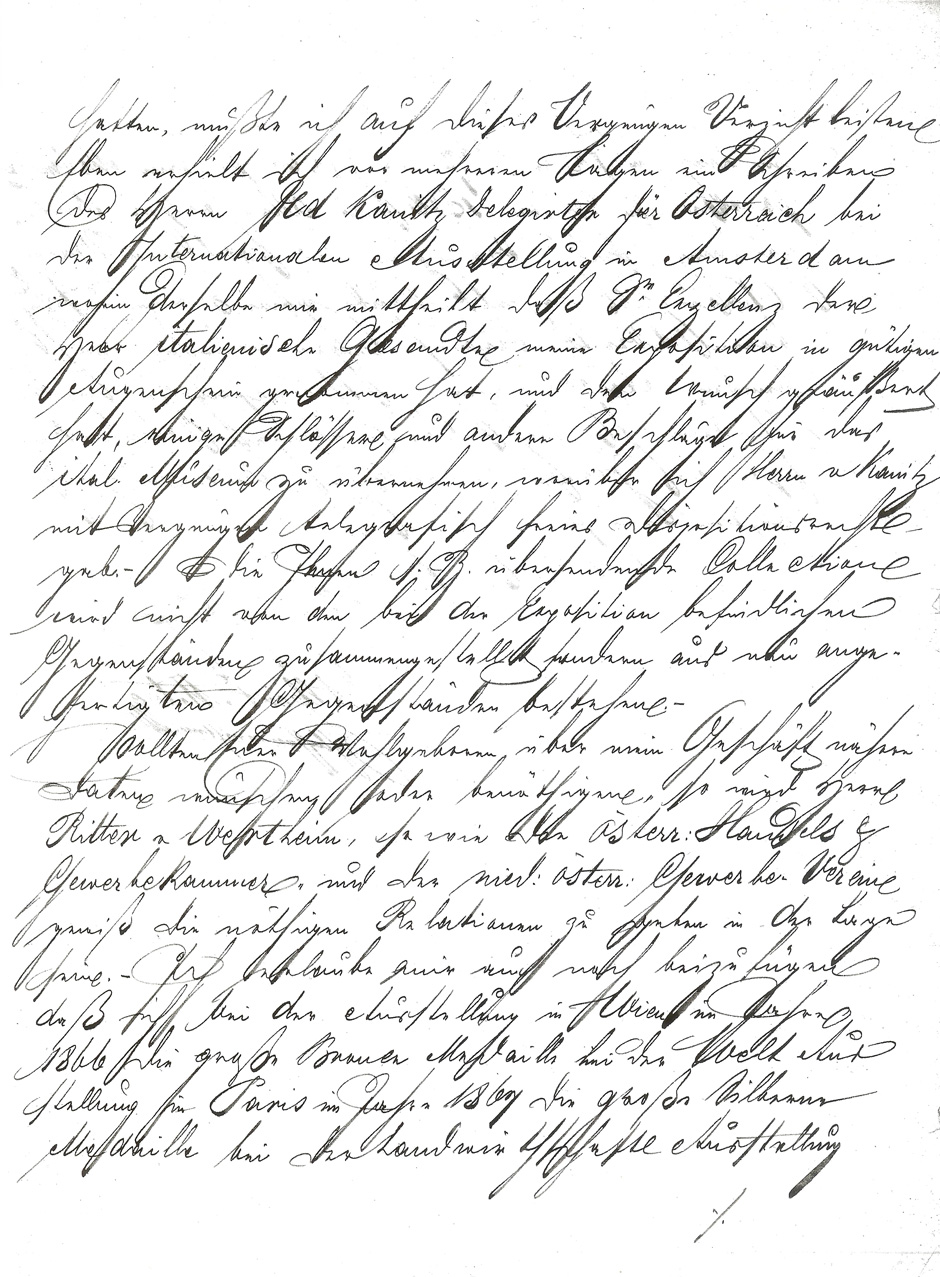 hatten, mußte ich auf dieses Vergnügen Verzicht leisten
Eben erhielt ich vor mehreren Tagen ein Schreiben
des Herrn Ed Kanitz Delegirter für Österreich bei
der Internationalen Ausstellung in Amsterdam
worin Derselbe mir mittheilt daß Sr Exzellenz der
Herr italienische Gesandte meine Exposition in gütigen
Augenschein genommen hat, und den Wunsch geäußert
hat, einige Schlösser und andere Beschläge für das
ital. Museum zu übernehmen, worüber ich Herrn v Kanitz
mit Vergnügen telegrafisch freies Dispositionsrecht
gab.- die Ihnen übersendende Collection
wird nicht von den bei der Exposition befindlichen
Gegenständen zusammengestellt sondern aus neu ange-
fertigten Gegenständen bestehen.-
Sollten Euer Wohlgeboren, über mein Geschäft nähere
Daten wünschen oder benöthigen, so wird Herr
Ritter v Wertheim, so wie die österr: Handels &
Gewerbekammer, und der nied: österr: Gewerbe-Verein
gewiß die nöthigen Relationen zu geben in der Lage
sein.- Ich erlaube mir auch noch beizufügen
daß ich bei der Ausstellung in Wien im Jahre
1866 die große Bronce Medaille bei der Welt Aus
stellung in Paris im Jahre 1867 die große Silberne
Medaille bei der Landwirthschaftl Ausstellung
./.